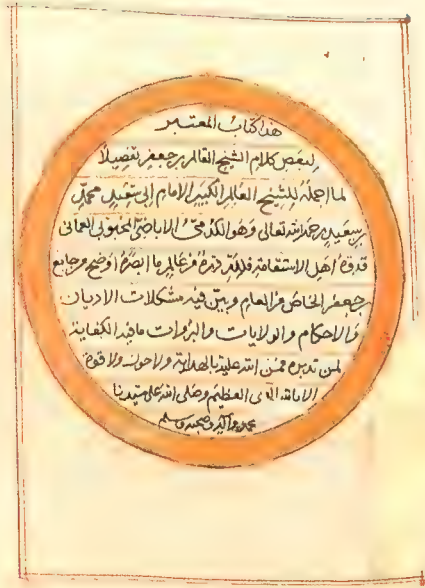 هذا كتاب المعتبر
لبعض كلام الشيخ العالم بن جعفر تفصيلاً
لما اجمله للشيخ العالم الكبير الامام ابي سعيد محمد بن
سعيد رحمه الله تعالى وهو الكدمي الاباضي المحبوبي العماني
قدوة اهل الاستقامة فلله دره من عالم ما ابصره اوضح من جامع
بن جعفر الخاص من العام وبين فيه مشكلات الاديان
والاحكام والولايات والبراءات ما فيه الكفاية
لمن تدبره ممن الله عليه بالهداية ولا حول ولا قوة
الا بالله العلي العظيم وصلى الله على سيدنا
محمد وآله وصحبه وسلم